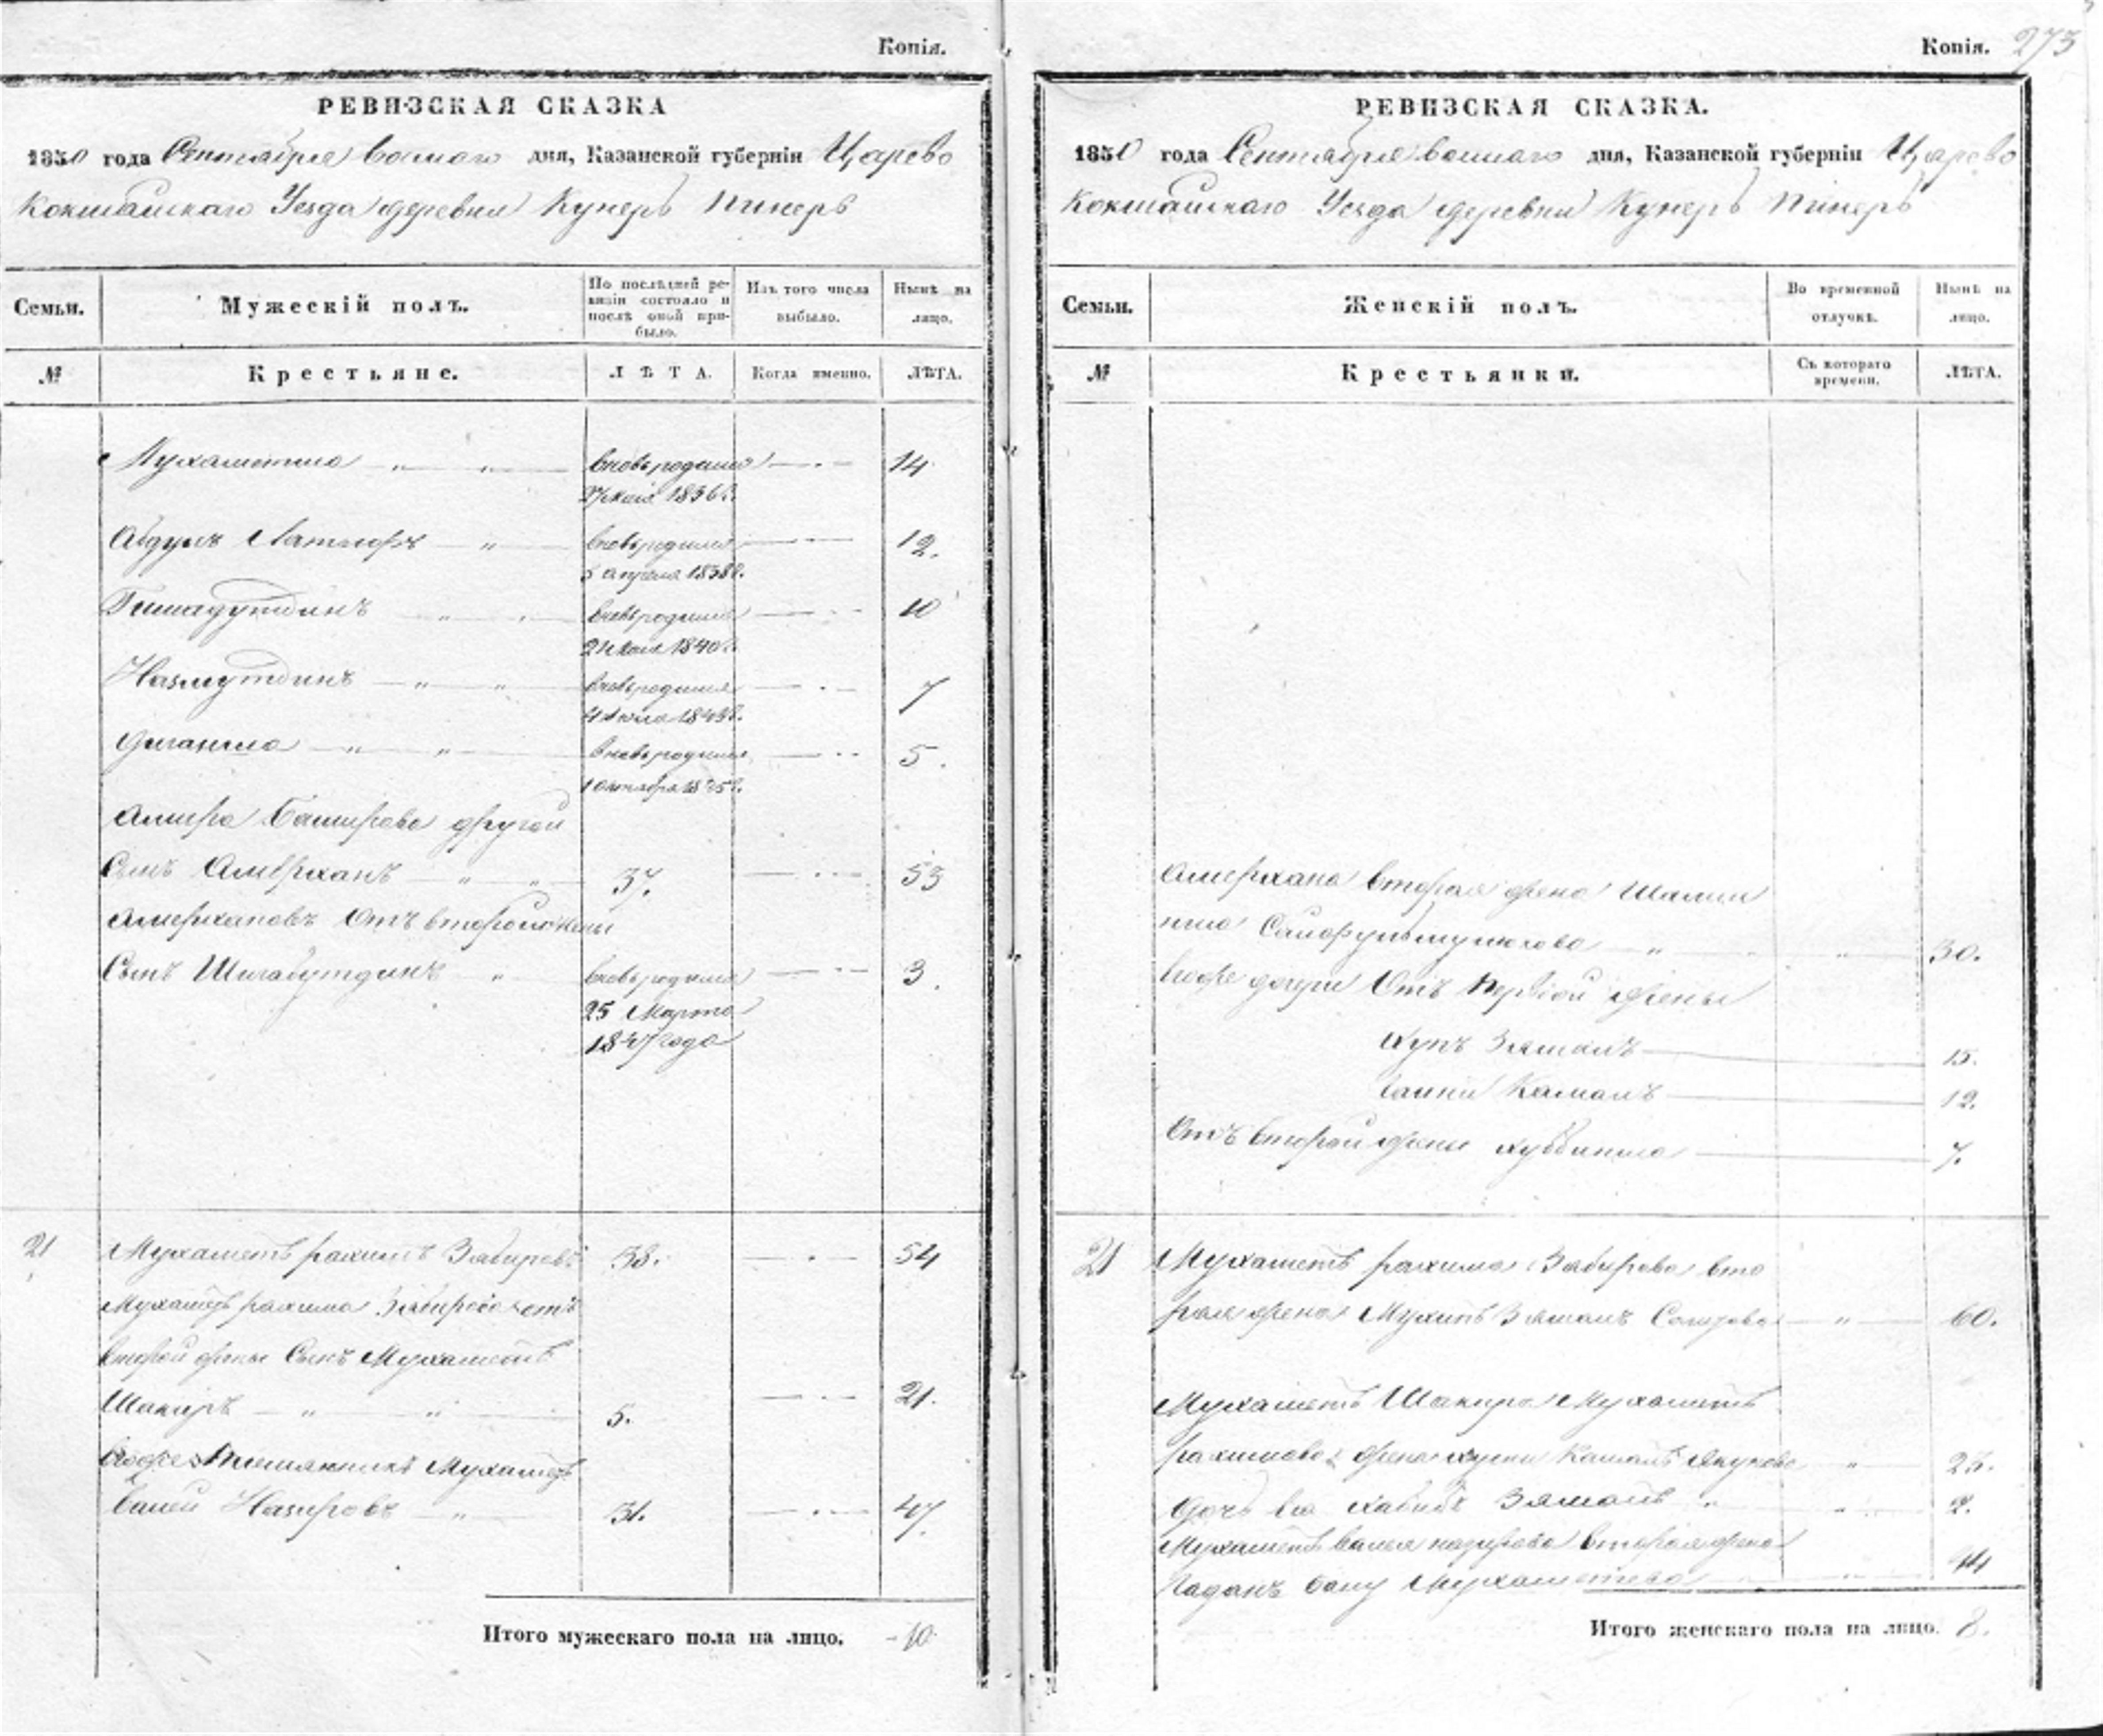 Копія.
РЕВИЗСКАЯ СКАЗКА
1850 года Сентября дня, Казанской губерніи Царево
Кокшайскаго Уезда деревни Кунеръ Пинеръ
Семьи.
Мужескій полъ.
По послѣдней ре-
визіи состояло и
послѣ оной при-
было.
Изъ того числа
выбыло.
Нынѣ на
лицо.
№
Крестьяне.
ЛѢТА.
Когда именно.
ЛѢТА.
Мухаметша вновь родился 14
1836 г.
Абдулъ Латифъ вновь родился 12.
5 апреля 1838 г.
Гимадутдинъ вновь родился 10
1840 г.
Назмутдинъ вновь родился 7
1843 г.
вновь родился 5.
1 Октября 1845 г.
Амира Баширова другой
Сынъ Амерханъ 37. 53
Амерхановъ Отъ второй жены
Сынъ Шигабутдинъ вновь родился 3.
25 Марта
1847 года
21 Мухаметь рахимъ Забировъ 38. 54
Мухаметь рахима Забирова отъ
второй жены Сынъ Мухаметь
Шакиръ 5. 21.
Егоже племянникъ Мухаметь
Валей Назировъ 31. 47.
Итого мужескаго пола на лицо. 10
Копія. 273
РЕВИЗСКАЯ СКАЗКА.
1850 года Сентября дня, Казанской губерніи Царево
Кокшайскаго Уезда деревни Кунеръ Пинеръ
Семьи.
Женскій полъ.
Во временной
отлучкѣ.
Нынѣ на
лицо.
№
Крестьянки.
Съ котораго
времени.
ЛѢТА.
Амерхана вторая жена 30.
Егоже дочери Отъ первой жены
Зямалъ 15.
Камалъ 12.
Отъ второй жены 7.
21 Мухаметь рахима Забирова вто
рая жена Зямалъ 60.
Мухаметь Шакира Мухаметь
рахимова жена Камалъ 25.
Дочь Ея Хабибъ Зямалъ 2.
Мухаметь валея назирова вторая жена
Бану 44
Итого женскаго пола на лицо. 8.